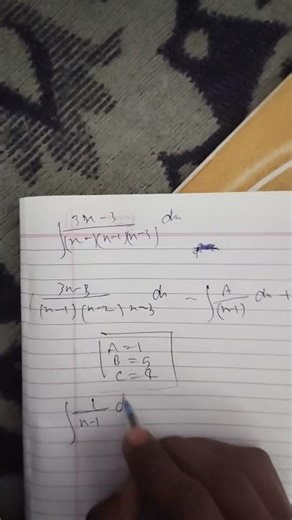 ∫ 3x-3 / (x-1)(x-1)(x-3) dx
3x-3 / (x-1)(x-2) x-3 dx = ∫ A / (x-1) dx +
A = 1
B = 5
C = 4
∫ 1 / x-1 d